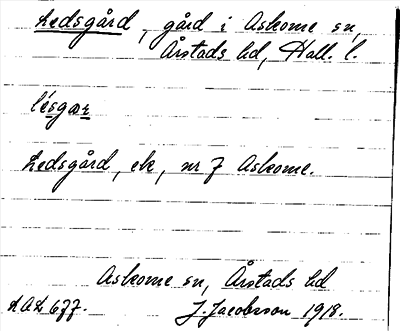 Ledsgård, gård i Askome sn,
Årstads hd, Hall. l.
lésgær
Ledsgård, ek, nr 7 Askome.
Askome sn, Årstads hd
AAL 677. J. Jacobsson 1918.